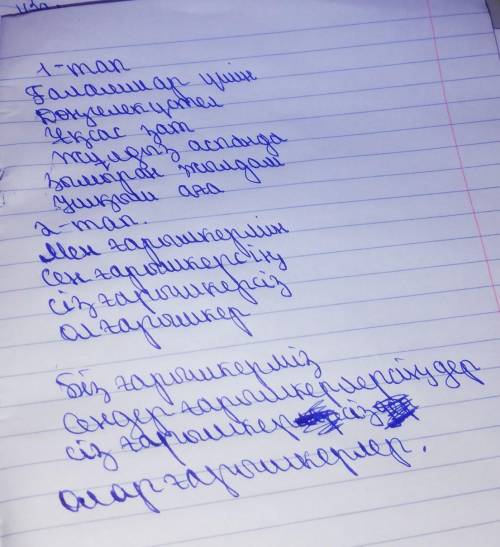 1-тап
Ғаламшар үшін
Дөңгелек үстел
Ұқсас зат
Жұлдыз аспанда
жолдам
ана
2-тап.
Мен ғарышкермін
сен ғарышкерсің
сіз ғарышкерсіз
ол ғарышкер
біз ғарышкерміз
сендер ғарышкерлерсіңдер
сіз ғарышкер сіз
олар ғарышкерлер.